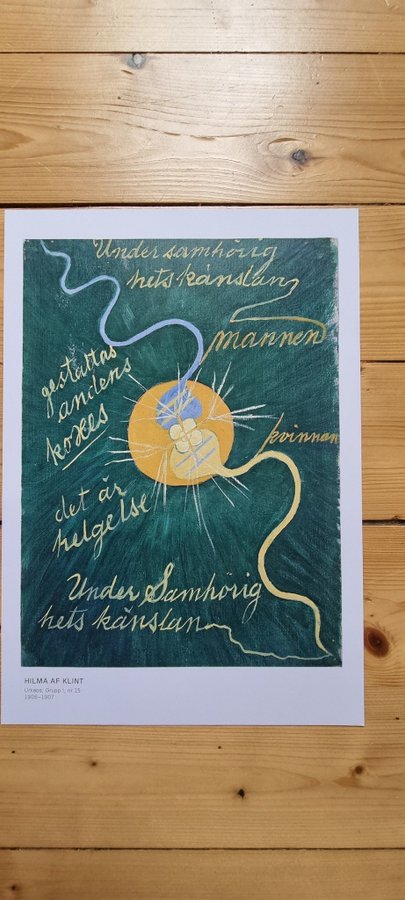 Undersamhörig
hets känslan
mannen
gestaltas
andens
koxes
kvinnan
det är
helgelse
Under Samhörig
hets känslan
HILMA AF KLINT
Urkaos, Grupp I, nr 15
1906–1907